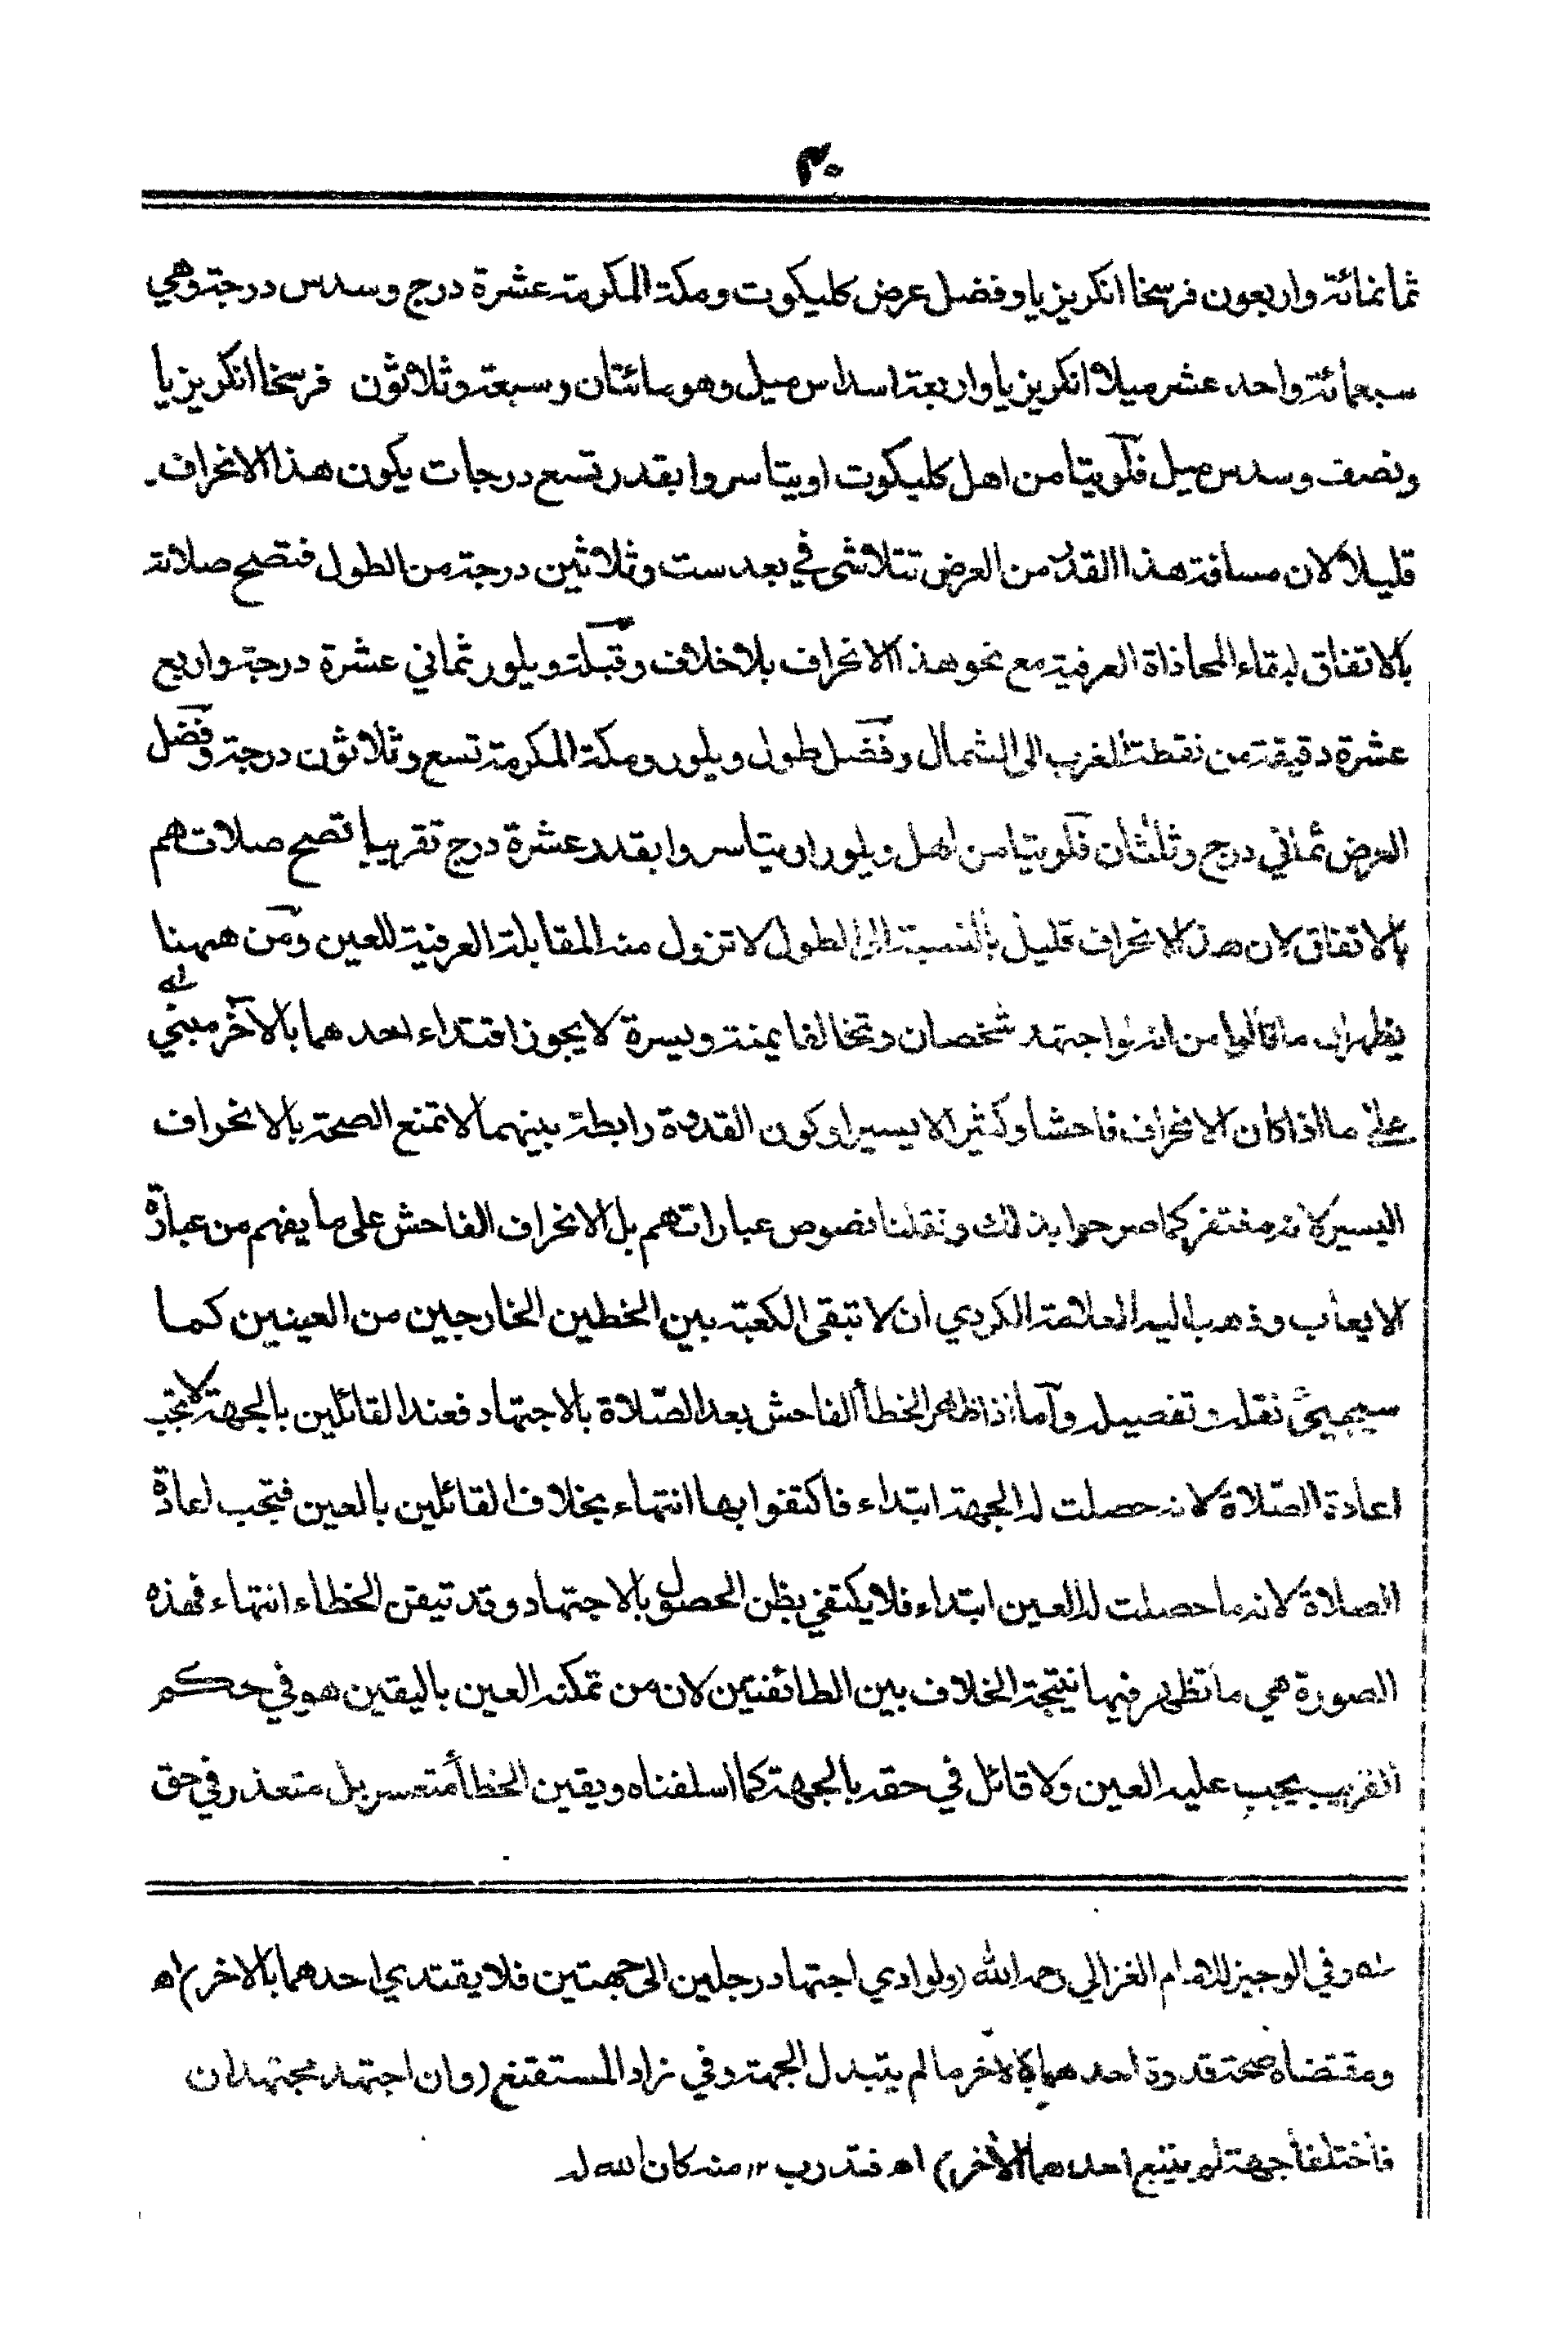 ٣٠
ثمانمائة واربعون فرسخا انكريزيا وفضل عرض كليكوت ومكة المكرمة عشرة درج وسدس درجة وهي
سبعمائة واحد عشر ميلا انكريزيا واربعة اسداس ميل وهو مائتان وسبعة وثلاثون فرسخا انكريزيا
ونصف وسدس ميل فلو يتيامن اهل كليكوت او يتياسروا بقدر تسع درجات يكون هذا الانحراف
قليلا لان مسافة هذا القدر من العرض تتلاشى في بعد ست وثلاثين درجة من الطول فتصح صلاته
بالاتفاق لبقاء المحاذاة العرفية مع نحو هذا الانحراف بلا خلاف وقبلة ويلور ثماني عشرة درجة واربع
عشرة دقيقة من نقطة المغرب الى الشمال وفضل طول ويلور ومكة المكرمة تسع وثلاثون درجة وفضل
العرض ثماني درج وثلثان فلو يتيامن اهل ويلور او يتياسروا بقدر عشرة درج تقريبا تصح صلاتهم
بالاتفاق لان هذا الانحراف قليل بالنسبة الى الطول لا تزول منه المقابلة العرفية للعين ومن ههنا
يظهر ان ما قالوا من انه لو اجتهد شخصان وتخالفا يمنة ويسرة لا يجوز اقتداء احدهما بالآخر مبني له
على ما اذا كان الانحراف فاحشا وكثيرا لا يسيرا وكون القدوة رابطة بينهما لا تمنع الصحة بالانحراف
اليسير لانه مغتفر كما صرحوا بذلك ونقلنا نصوص عباراتهم بل الانحراف الفاحش على ما يفهم من عبارة
الايعاب وذهب اليه العلامة الكردي ان لا تبقى الكعبة بين الخطين الخارجين من العينين كما
سيجيئ نقله وتفصيله وآما اذا ظهر الخطأ الفاحش بعد الصّلاة بالاجتهاد فعند القائلين بالجهة لا تجب
اعادة الصّلاة لانه حصلت له الجهة ابتداء فاكتفوا بها انتهاء بخلاف القائلين بالعين فتجب اعادة
الصلاة لانه ما حصلت له العين ابتداء فلا يكتفي بظن الحصول بالاجتهاد وقد تيقن الخطاء انتهاء فهذه
الصورة هي ما تظهر فيها نتيجة الخلاف بين الطائفتين لان من تمكنه العين باليقين هو في حكم
القريب يجب عليه العين ولا قائل في حقه بالجهة كما اسلفناه ويقين الخطأ متعسر بل متعذر في حق
له وفي الوجيز للامام الغزالي رحمه الله (ولو ادي اجتهاد رجلين الى جهتين فلا يقتدي احدهما بالاخر) اه
ومقتضاه صحة قدوة احدهما بالاخر ما لم يتبدل الجهة وفي زاد المستقنع (وان اجتهد مجتهدان
فاختلفا جهة لم يتبع احدهما الآخر) اه فتدرب ١٢ منه كان الله له